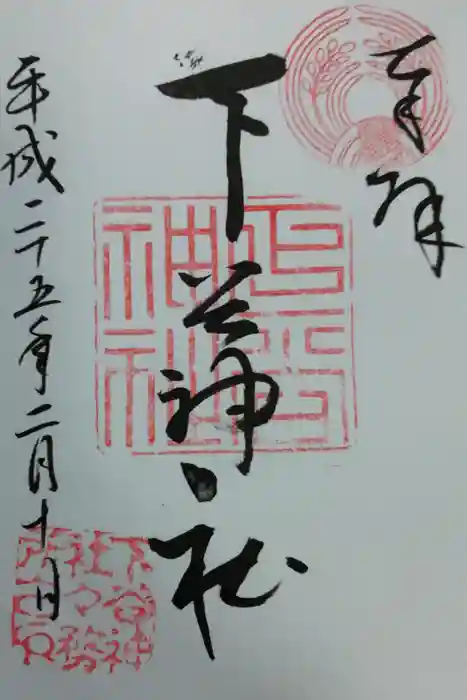 奉拝
下谷神社
下谷
神社
平成二十五年二月十一日
下谷神
社々務
所之印